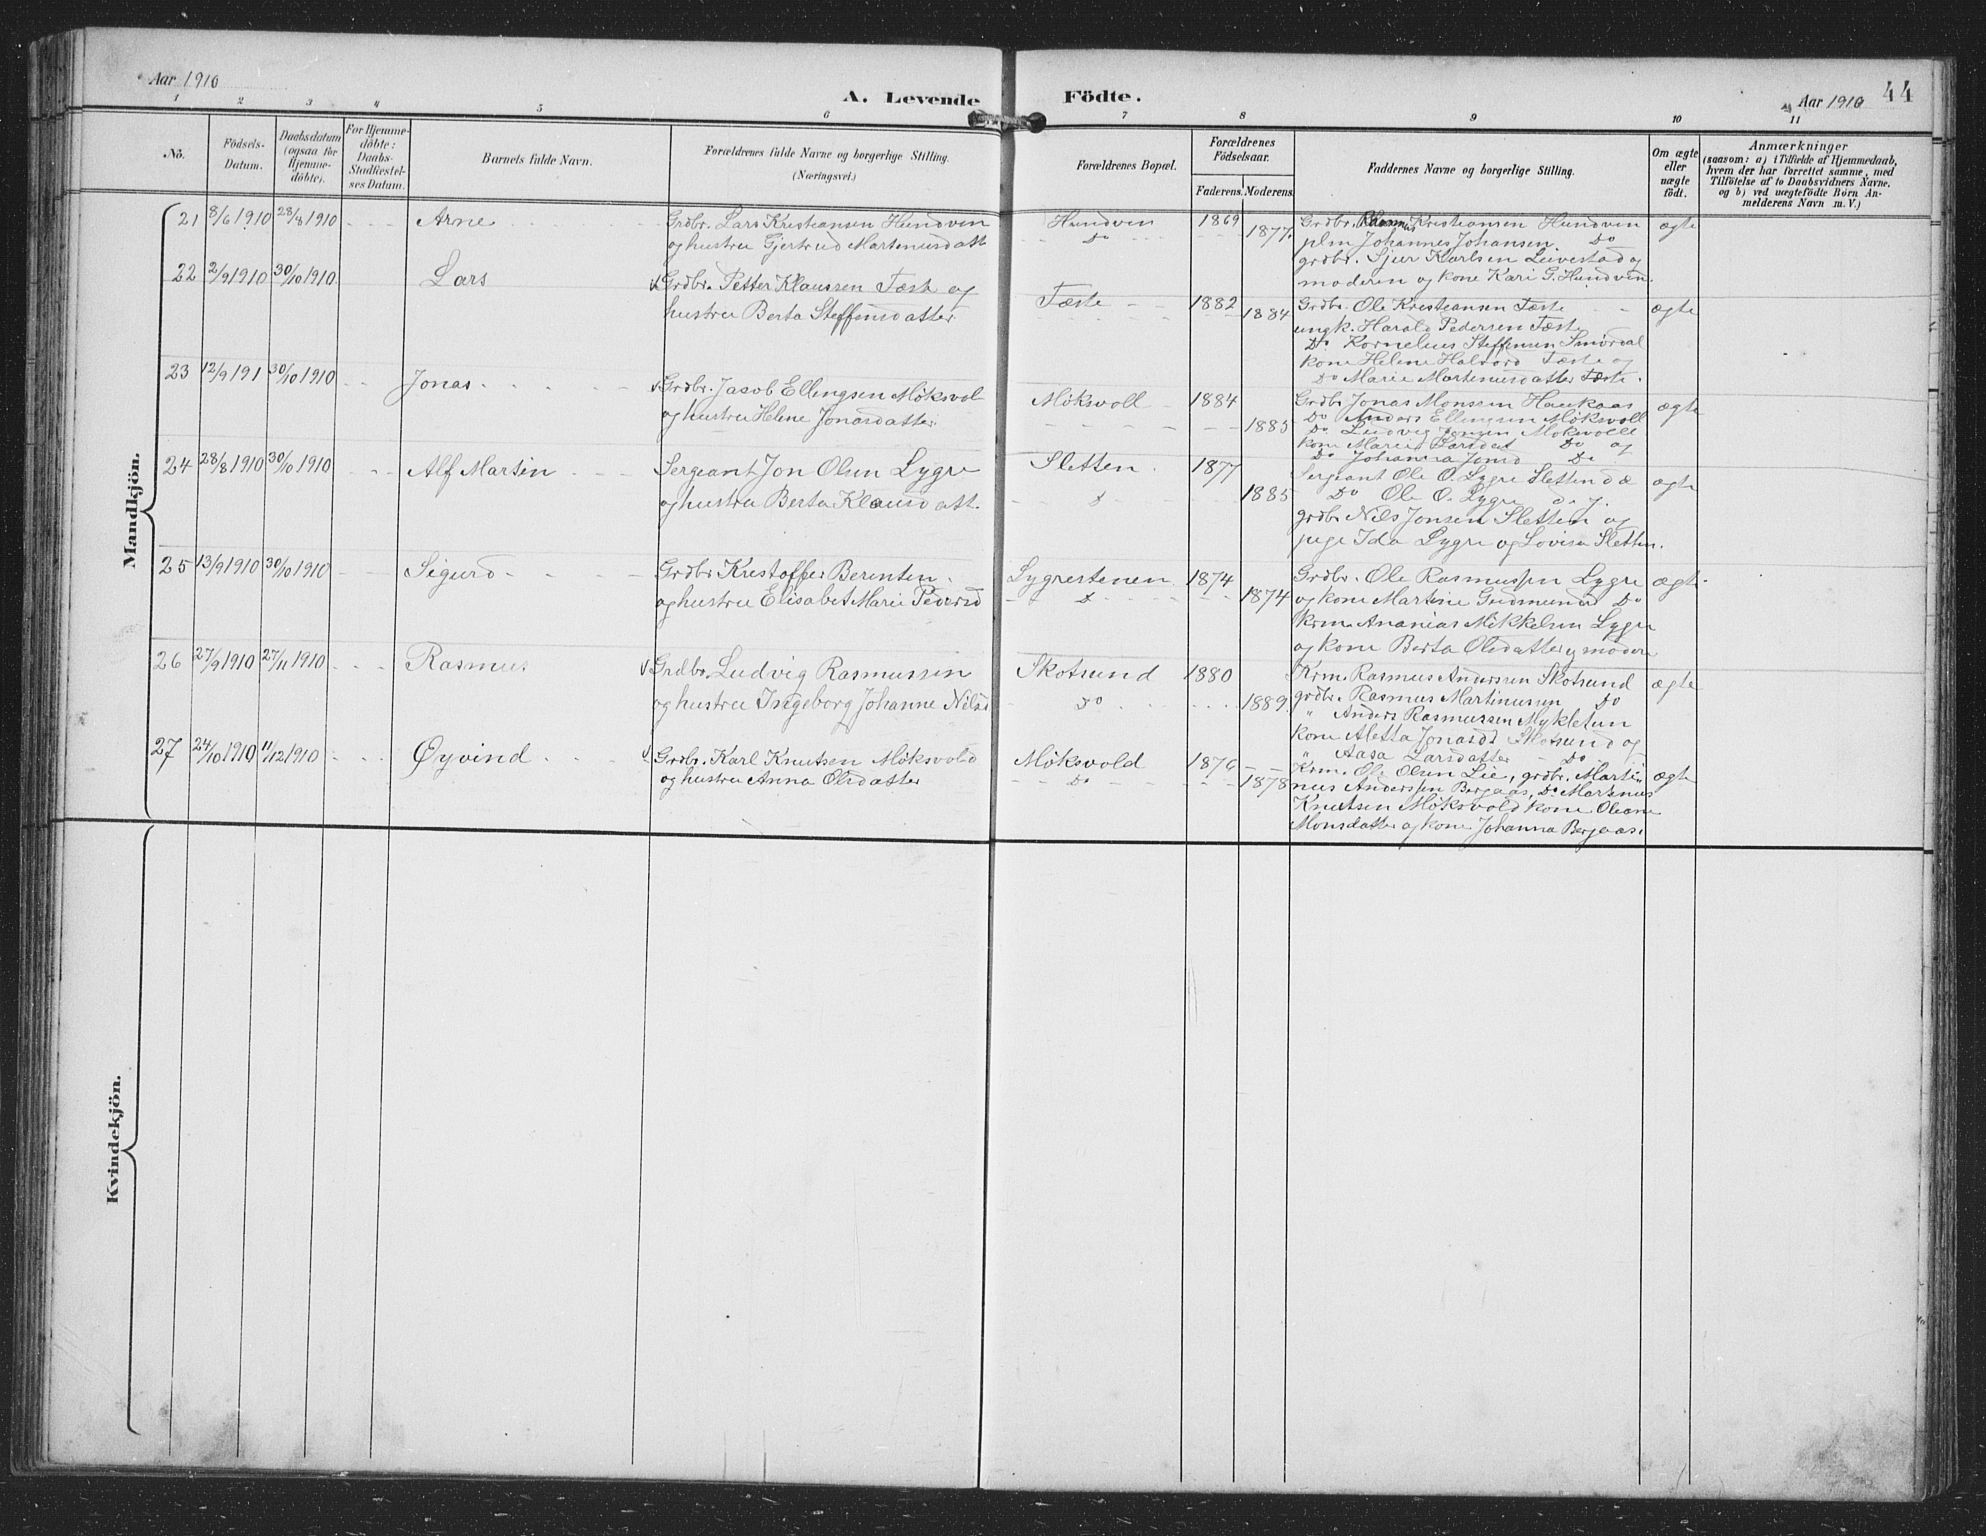 Aar 1910
A. Levende Födte.
Aar 1910
44
1 2 3 4 5 6 7 8 9 10 11
No.
Födsels-Datum.
Daabsdatum (ogsaa for Hjemme-döbte).
For Hjemme-döbte: Daabs-Stadfæstel-ses Datum.
Barnets fulde Navn.
Forældrenes fulde Navne og borgerlige Stilling. (Næringsvei.)
Forældrenes Bopæl.
Forældrenes Födselsaar.
Faderens. Moderens.
Faddernes Navne og borgerlige Stilling.
Om ægte eller uægte födt.
Anmærkninger
(saasom: a) i Tilfælde af Hjemmedaab,
hvem der har forrettet samme, med
Tilföielse af to Daabsvidners Navne.
og b) ved uægtefödte Börn An-
melderens Navn m. V.)
Mandkjön.
21 8/6 1910 28/8 1910 - - - Arne
Grdbr. Lars Kristiansen Hundven
og hustru Gjertrud Martenusdatt
Hundven
Do
1869
1877.
Grdbr. Rasmus Kristiansen Hundven
plm Johannes Johansen. Do
grdbr. Sjur Karlsen Leivestad og
moderen og kone Kari G. Hundven.
ægte
22 2/9 1910 30/10 1910 Lars
Grdbr. Petter Klaussen Tæste og
hustru Berta Steffensdatter
Tæste
1882
1884
Grdbr. Ole Kristiansen Tæste
ungk. Harald Pedersen Tæste
Do Kornelius Steffensen Smørdal
kone Helene Halvord Tæste og
Do Marie Martenusdatter Tæste.
ægte
23 12/9 191 30/10 1910 - - Jonas
Grdbr. Jacob Ellingsen Møksvol
og hustru Helene Jonasdatter
Møksvoll
1884
1885
Grdbr Jonas Monsen Haukaas
Do Anders Ellingsen Møksvoll
Do Ludvig Jonsen Moksvoll
kone Marie Larsdat Do og
Do Johanna Jonsd Do
ægte
24 28/8 1910 30/10 1910 - - - Alf Martin
Sergeant Jon Olsen Lygre
og hustru Berta Klausdatt.
Sletten
D
1877
1885
Sergeant Ole O. Lygre Sletten d æ
Do Ole O. Lygre d. y.
grdbr. Nils Jonsen Sletten og
pige Ida Lygre og Lovise Sletten.
ægte
25 13/9 1910 30/10 1910 - - - Sigurd
Grdbr Kristoffer Berenten
og hustru Elisabet Marie Pedersd
Lygrestenen
D
1874
1874
Grdbr. Ole Rasmussen Lygre
og kone Martine Gudmunds Do
Krm. Ananias Mikkelsen Lygre
og kone Berta Olsdatter y modere
ægte
26 27/9 1910 27/11 1910 - - - Rasmus
Grdbr. Ludvig Rasmussen
og hustru Ingeborg Johanne Nilsd
Skotsund
Do
1880
1889
Krm. Rasmus Andersen Skotsund
grdbr. Rasmus Martinussen Do
" Anders Rasmussen Mykletun
kone Aletta Jonasdt Skotsund og
" Aasa Larsdatter - Do -
ægte
27 24/10 1910 11/12 1910 - - - Øyvind
Grdbr. Karl Knutsen Møksvold
og hustru Anna Olsdatter
Møksvold
Do
1876
1878
Krm. Ole Olsen Lie, grdbr. Marti-
nus Anderssen Bergaas, Do Martenus
Knutsen Møksvold kone Oleane
Monsdatter og kone Johanna Bergaas.
ægte
Kvindekjön.